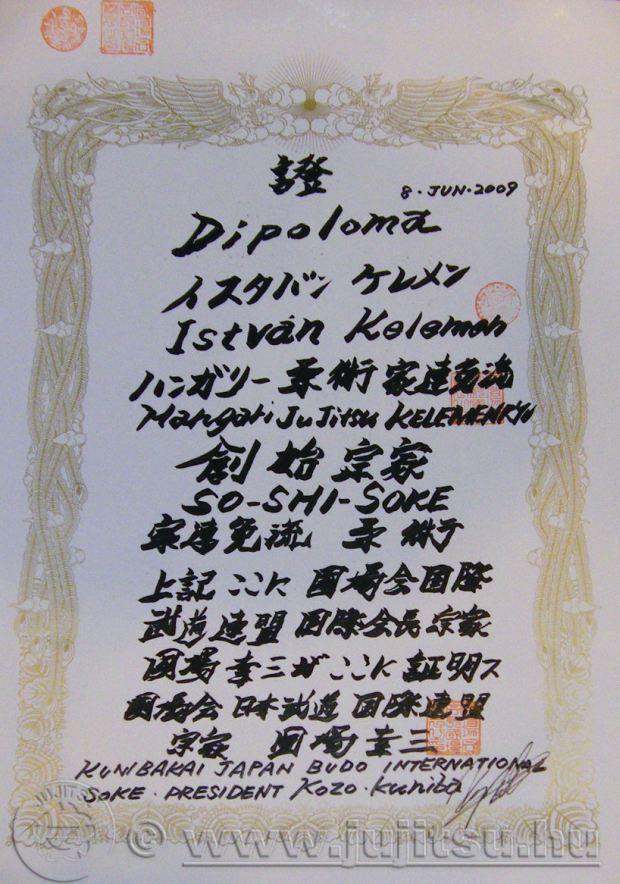 證
8・JUN・2009
Dipoloma
イスタバン ケレメン
István Kelemen
ハンガリー 柔術 家連免流
Hangari JuJitsu KELEMENRYU
創始宗家
SO-SHI-SOKE
家連免流 柔術
上記ここに 國場会国際
武道連盟 国際会長宗家
國場幸三がここに証明ス
國場会日本武道国際連盟
宗家 國場幸三
KUNIBAKAI JAPAN BUDO INTERNATIONAL
SOKE・PRESIDENT Kozo・Kuniba
JUJITSU
© www.jujitsu.hu